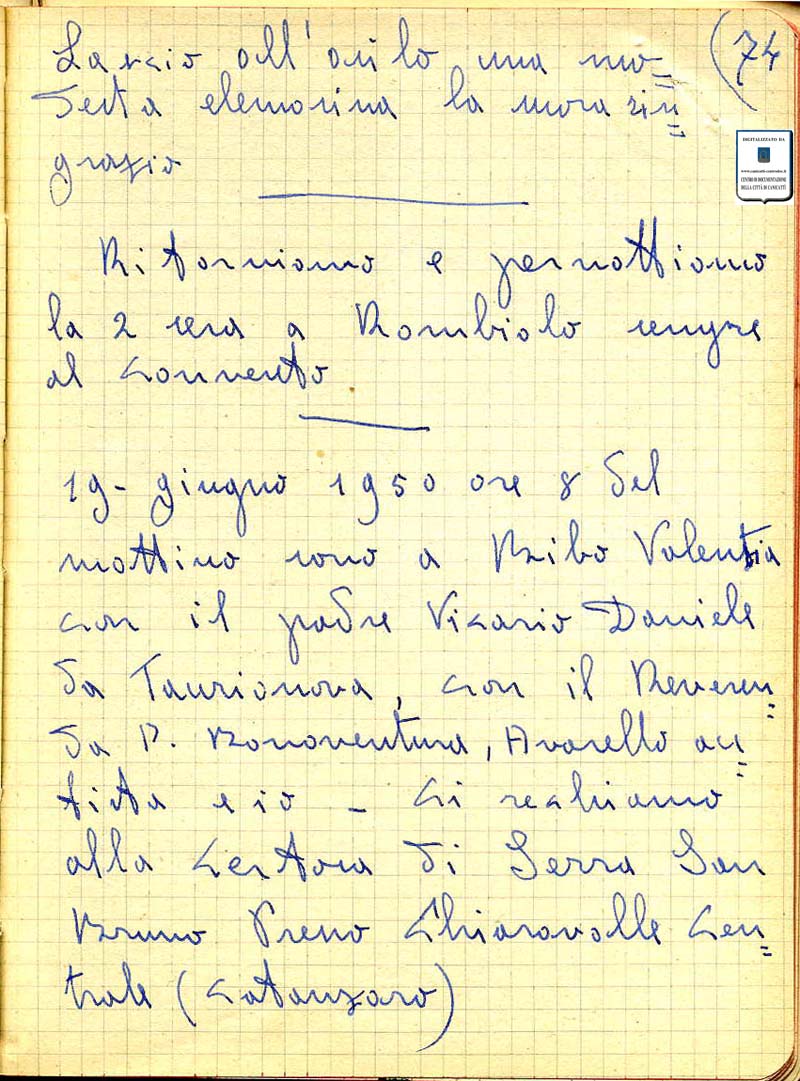 Lascio all'asilo una mo= (74
desta elemosina la suora rin=
grazia
Ritorniamo e pernottiamo
la 2 sera a Rombiolo sempre
al Convento
19- giugno 1950 ore 8 del
mattino sono a Vibo Valentia
con il padre Vicario Daniele
da Taurianova, con il Reveren=
do P. Bonaventura, Avarello au=
tista e io - Ci rechiamo
alla Certosa di Serra San
Bruno Preso Chiaravalle Cen=
trale (Catanzaro)
DIGITALIZZATO DA
CENTRO DI DOCUMENTAZIONE
DELLA CITTÀ DI CANICATTÌ